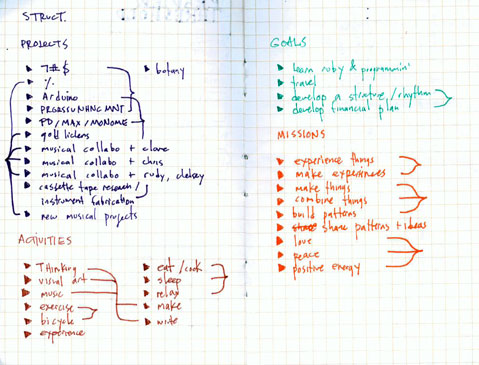 STRUCT.
PROJECTS
%
Arduino
PD/MAX/MONOME
gold lichens
musical collabo + clare
musical collabo + chris
musical collabo + rudy,
cassette tape research /
instrument fabrication
new musical projects
botany
ACTIVITIES
Thinking
visual art
music
exercise
bicycle
experience
eat/cook
sleep
relax
make
write
GOALS
learn ruby & programmin'
travel
develop a structure/rhythm
develop financial plan
MISSIONS
experience things
make experiences
make things
combine things
build patterns
share patterns + ideas
love
peace
positive energy